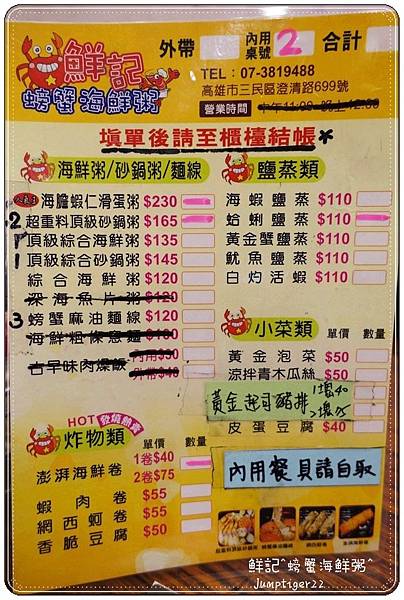 鮮記
螃蟹海鮮粥
外帶
內用
桌號 2
合計
TEL：07-3819488
高雄市三民區澄清路699號
營業時間
填單後請至櫃檯結帳*
海鮮粥/砂鍋粥/麵線
海膽蝦仁滑蛋粥 $230
2 超重料頂級砂鍋粥 $165
1 頂級綜合海鮮粥 $135
1 頂級綜合砂鍋粥 $145
綜合海鮮粥 $120
深海魚片粥 $120
3 螃蟹麻油麵線 $120
海鮮粗條意麵
古早味肉燥飯
鹽蒸類
海蝦鹽蒸 $110
蛤蜊鹽蒸 $110
黃金蟹鹽蒸 $110
魷魚鹽蒸 $110
白灼活蝦 $110
小菜類 單價 數量
黃金泡菜 $50
涼拌青木瓜絲 $50
黃金起司豬排 1塊40
皮蛋豆腐 $40
內用餐具請自取
HOT 發燒熱賣
炸物類 單價 數量
澎湃海鮮卷 1卷$40
2卷$75
蝦肉卷 $55
網西蚵卷 $55
香脆豆腐 $50
鮮記^螃蟹海鮮粥^
Jumptiger22